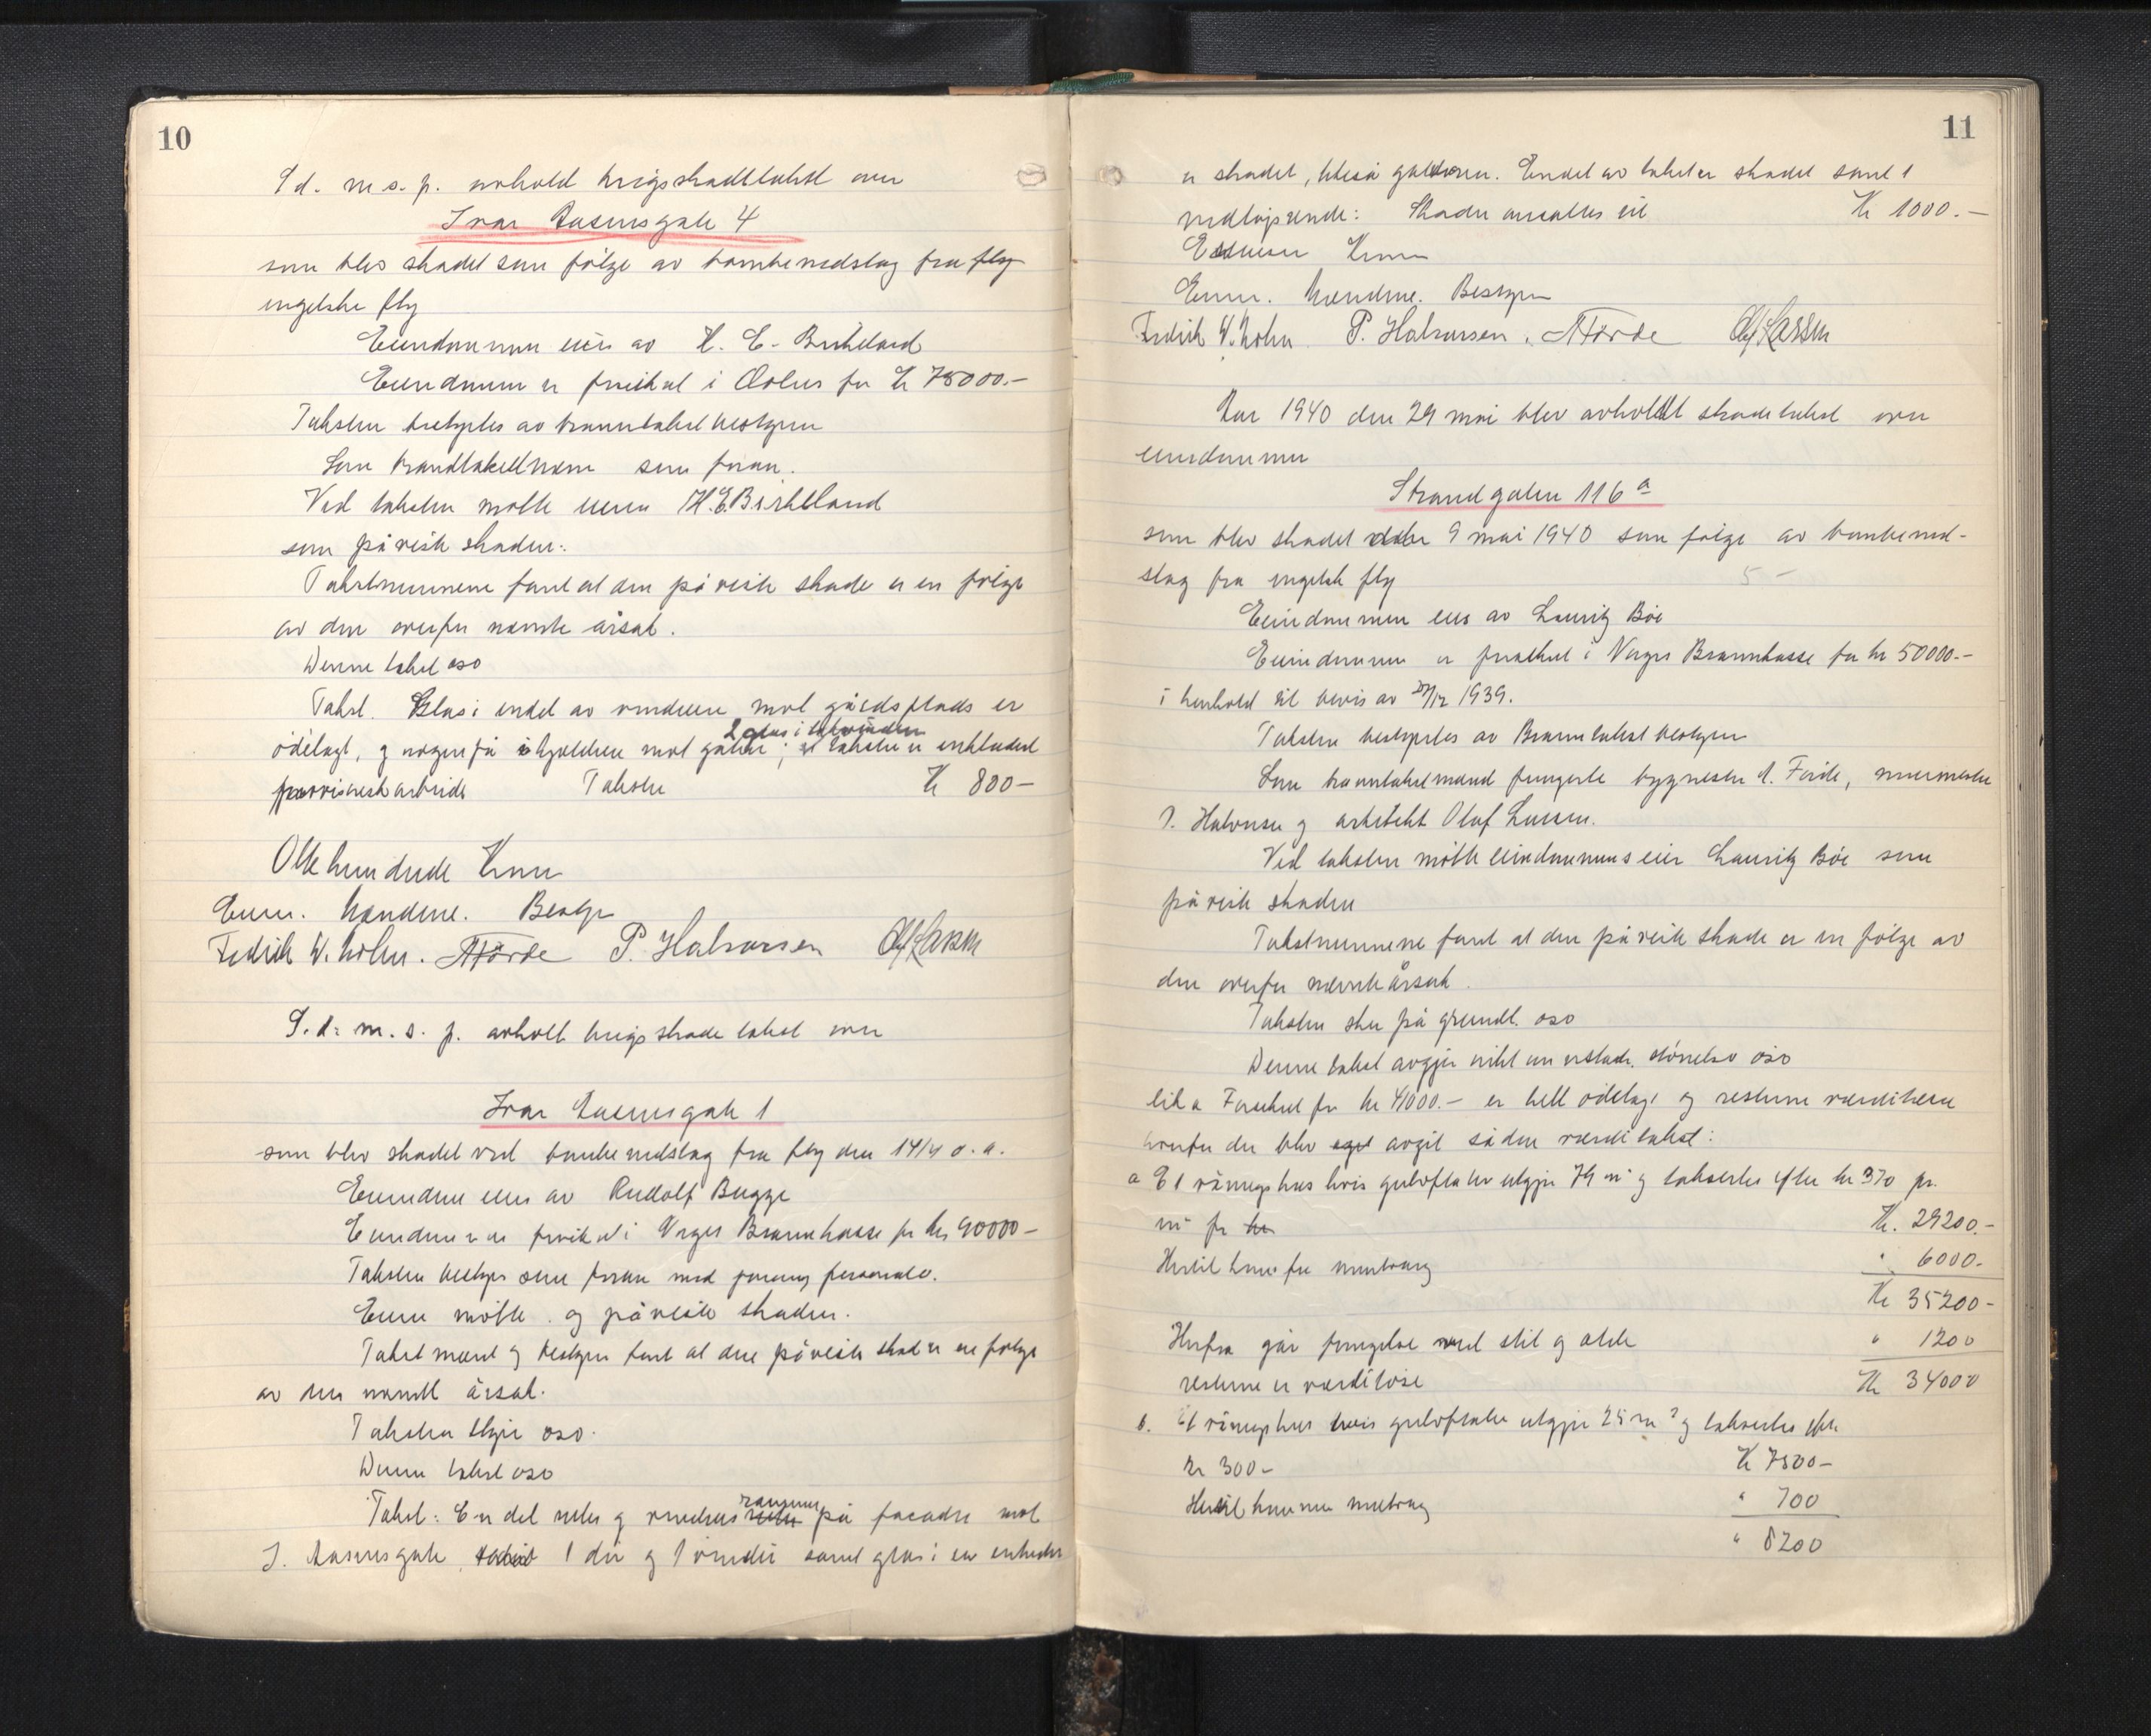 10
S.d. m. s. p. avhold krigsskadetakst over
Ivar Aasensgate 4
som blev skadet som følge av bombenedslag fra fly
engelske fly
Eiendommen eies av H. E. Birkeland
Eiendommen er forsikret i Æolus for Kr 75000.-
Taksten bestyrtes av branntakstbestyrer
Som brandtakstmenn som foran.
Ved taksten møtte eieren H.E. Birkeland
som påviste skaden.
Takstmennene fant at den påviste skade er en følge
av den ovenfor nevnte årsak.
Denne takst oso
Takst. Glas i endel av vinduene mot gårdsplads er
2 glas i takvinduer
ødelagt, og nogen få i hjelderen mot gaten; i taksten er innkludert
provisorisk arbeide Taksten Kr 800-
Otte hundrede Kroner
Enn. Mændene. Bestyr
Fredrik W. Holm. A Førde P. Halvorsen Olaf Lassen
S. d. m. s. p. avholt krigsskade takst over
Ivar Aasensgate 1
som blev skadet ved bombenedslag fra fly den 14/4 d. a.
Eiendom eies av Rudolf Bugge
Eiendommen er forsikret i Norges Brannkasse for kr 90000-
Taksten bestyres som foran med samme personale.
Eieren møtte og påviste skaden.
Takstmenn og bestyrer fant at den påviste skade er en følge
av den nevnte årsak.
Taksten skjer oso.
Denne takst oso
rammer
Takst: En del ruter og vindus ruter på facaden mot
I. Aasensgate, 1 dør og 1 vindu samt glas i en enkelte
11
er skadet, likeså gatedøren. Endel av taket er skadet samt 1
nedløpsrende: Skaden ansettes til Kr 1000.-
Et tusen Kroner
Enn. Mændene. Bestyrer
Fredrik W. Holm. P. Halvorsen. A Førde Olaf Lassen
Aar 1940 den 29 mai blev avholdt skadetakst over
eiendommen
Strandgaten 116 a
som blev skadet den 9 mai 1940 som følge av bombened-
slag fra engelsk fly
5 -
Eiendommen eies av Lauritz Bøe
Eiendommen er forsikret i Norges Brannkasse for kr 50000.-
i henhold til bevis av 27/12 1939.
Taksten bestyrtes av Branntakst bestyrer
Som branntakstmænd fungerte byggmester A. Førde, murmester
P. Halvorsen og arkitekt Olaf Lassen.
Ved taksten møtte eiendommens eier Lauritz Bøe som
påviste skaden
Takstmennene fant at den påviste skade er en følge av
den ovenfor nevnte årsak.
Taksten sker på grundl. oso
Denne takst avgjør ikke om erstatn. størrelse oso
lit a Forsikret for kr 41000.- er helt ødelagt og resterne værdiløse
hvorfor der blev avgit sådan værditakst:
a Et våningshus hvis gulvflate utgjør 79 m² og takseres efter kr 370 pr.
m² for kr Kr. 29200.-
Hertil kommer for murtrang " 6000.-
Kr 35200-
Herfra går forringelse ved slit og ælde " 1200
resterne er værdiløse Kr 34000
b. Et våningshus hvis gulvflate utgjør 25 m² og takseres efter
Kr 300- Kr 7500-
Hertil kommer murtrang " 700
" 8200